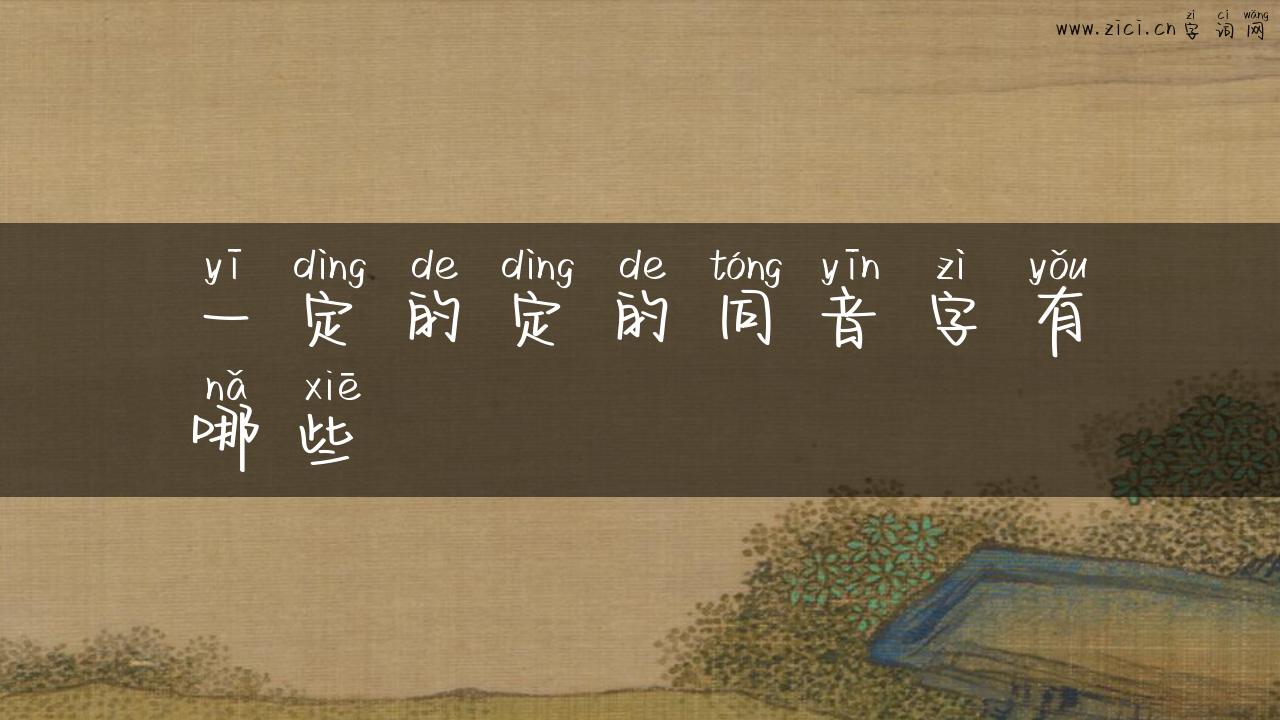 zì cí wǎng
www.zici.cn 字 词 网
yī dìng de dìng de tóng yīn zì yǒu
一 定 的 定 的 同 音 字 有
nǎ xiē
哪 些